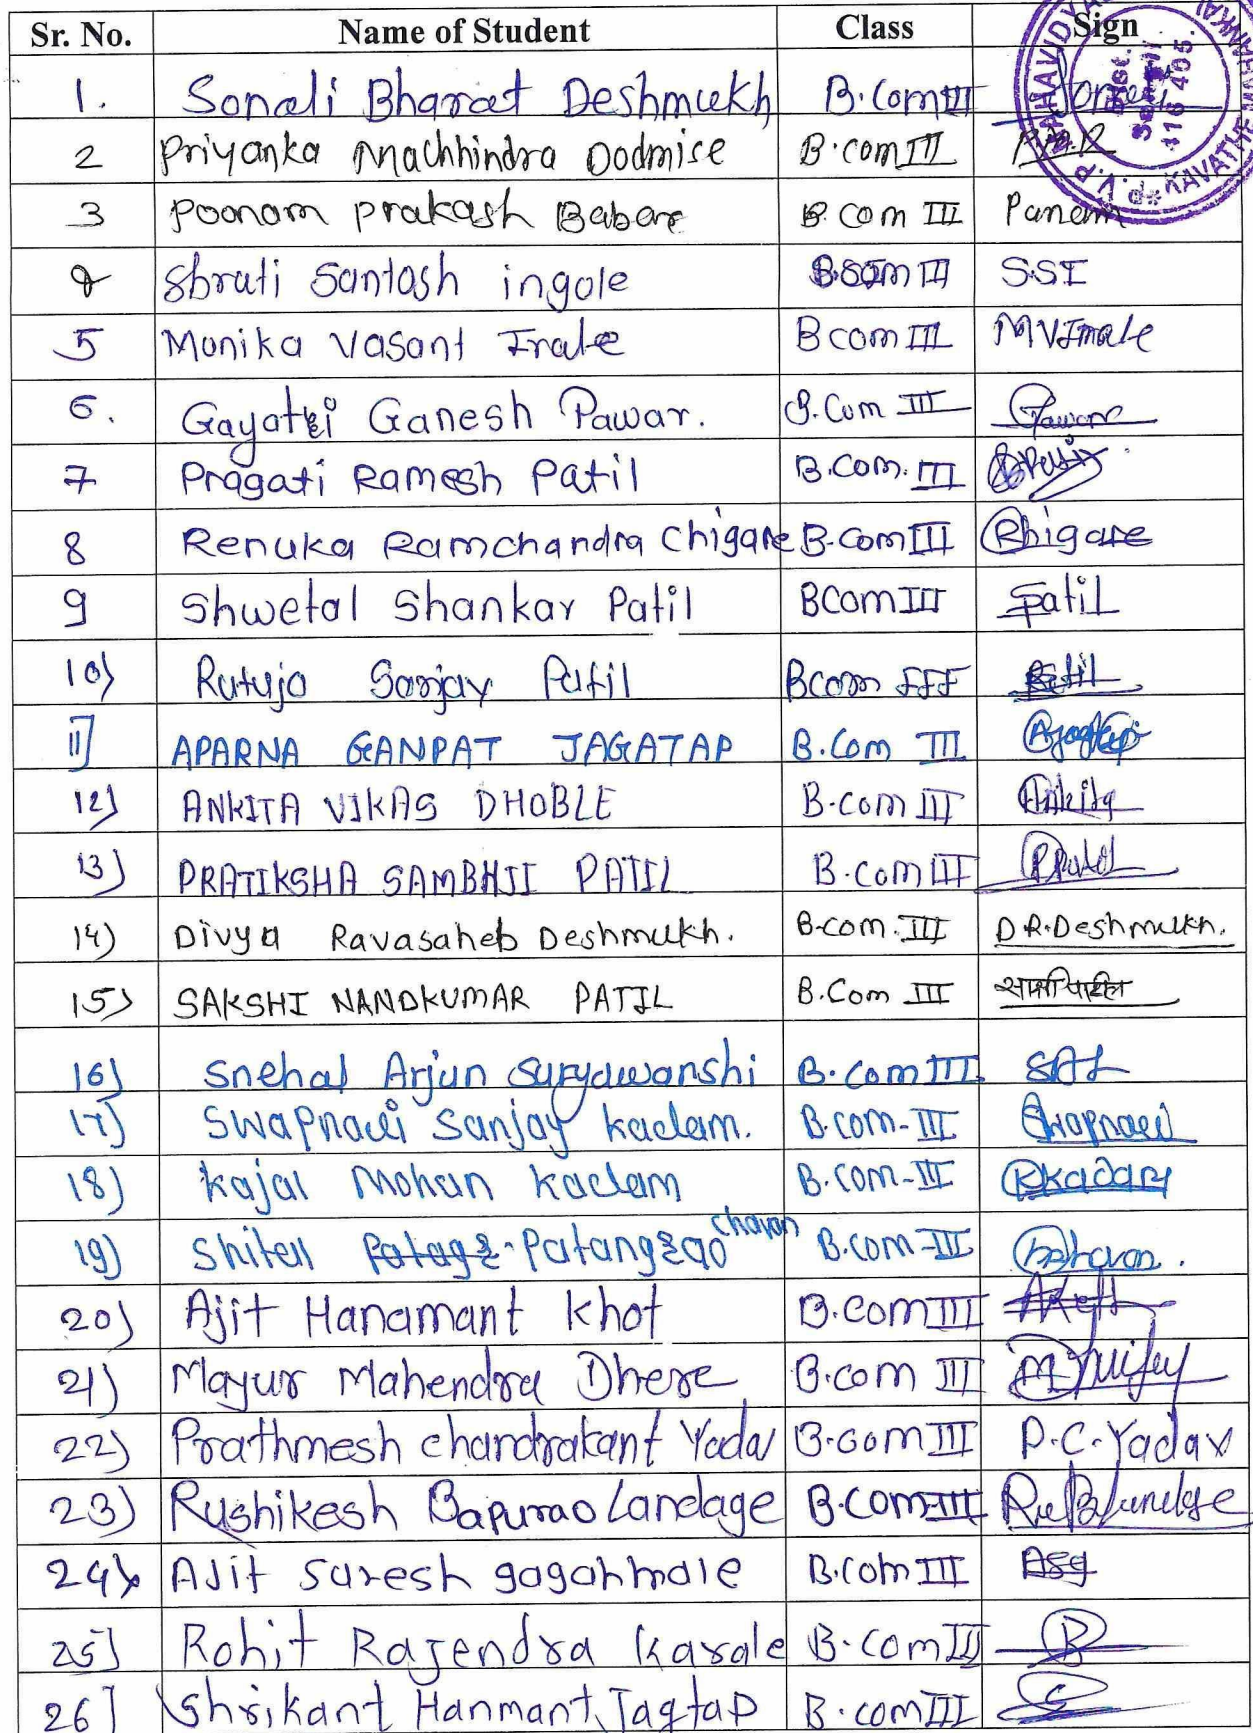 Sr. No. Name of Student Class Sign
1. Sonali Bharat Deshmukh B.Com III
2 Priyanka Machhindra Dodmise B.com III
3 poonam prakash Babare B com III Panem
Shruti Santosh ingole B.com III S.S.I
5 Monika Vasant Imale B com III MVImale
6. Gayatri Ganesh Pawar. B.Com III Pawar
7 Pragati Ramesh Patil B.Com. III
8 Renuka Ramchandra Chigare B.Com III Rhigare
9 Shwetal Shankar Patil BCom III Spatil
10) Rutuja Sanjay Patil BCom III Patil
11] APARNA GANPAT JAGATAP B.Com III
12) ANKITA VIKAS DHOBLE B.com III Ankita
13) PRATIKSHA SAMBHJI PATIL B.com III PPatil
14) Divya Ravasaheb Deshmukh. B.com. III D.R.Deshmukh.
15) SAKSHI NANDKUMAR PATIL B.Com III
16) Snehal Arjun Suryawanshi B.com III SAS
17) Swapnali Sanjay kadam. B.com-III Swapnali
18) kajal Mohan kadam B.com-III Kkadam
chavan
19) Shitall Patangrao B.com-III
20) Ajit Hanamant Khot B.Com III
21) Mayur Mahendra Dhere B.com III
22) Prathmesh chandrakant Yadav B.com III P.C.Yadav
23) Rushikesh Bapurao Landage B.com III
24) Ajit Suresh gaganmale B.com III Asg
25] Rohit Rajendra Karale B.com III R
26] Shrikant Hanmant Jagtap B.com III
P.V.P. MAHAVIDYA
KAVATHE MAHANKAL
Dist.
Sangli
416 405.